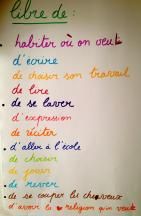 libre de :
habiter où on veut
d'ecrire
de choisir son travail
de lire
de se laver
d'expression
de réciter
d'aller à l'école
de choisir
de jouer
de rever
de se couper les cheveux
d'avoir la religion qu'on veut